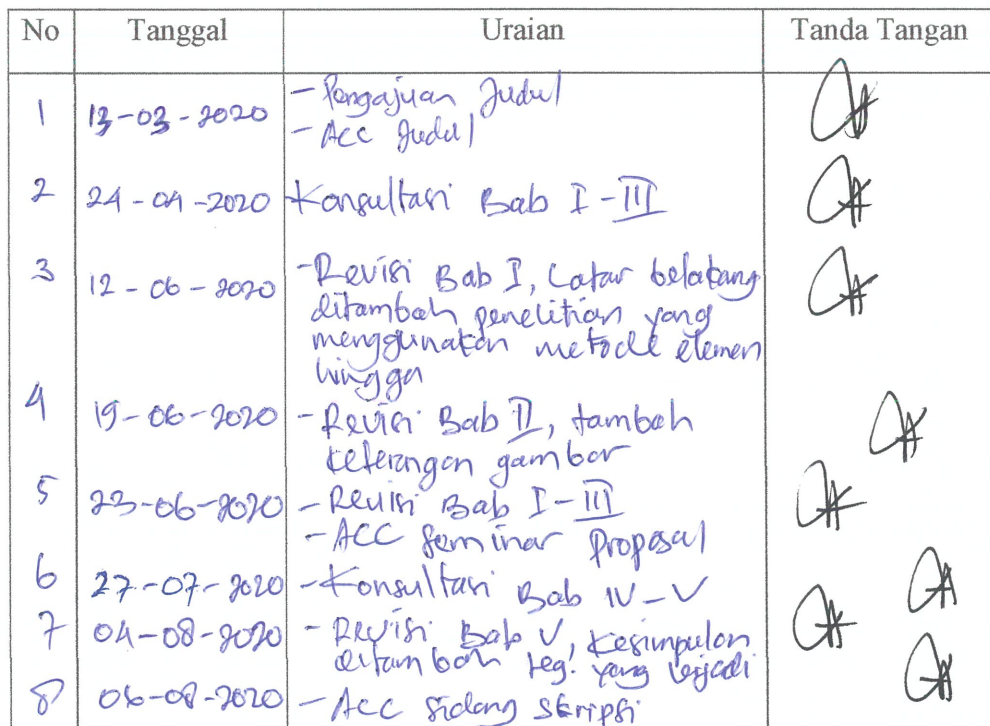 No Tanggal Uraian Tanda Tangan
1 13-03-2020 - Pengajuan Judul
- Acc Judul
2 24-04-2020 Konsultasi Bab I-III
3 12-06-2020 - Revisi Bab I, Latar belakang
ditambah penelitian yang
menggunakan metode elemen
hingga
4 19-06-2020 - Revisi Bab II, tambah
keterangan gambar
5 23-06-2020 - Revisi Bab I-III
- ACC Seminar Proposal
6 27-07-2020 - Konsultasi Bab IV-V
7 04-08-2020 - Revisi Bab V, Kesimpulan
ditambah teg. yang terjadi
8 06-08-2020 - Acc Sidang Skripsi